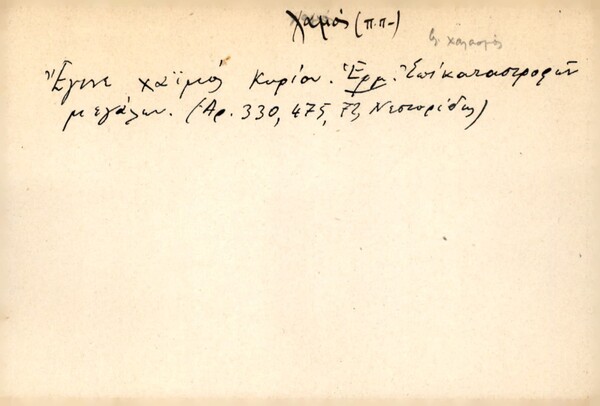 χαμός (π.π.-)
βλ. χαλασμός
Ἔγινε χαϊμός Κυρίου. Ἑρμ. Ἐπὶ καταστροφῶν
μεγάλων. (Ἀρ. 330, 475, Τζ Νεστορίδης)